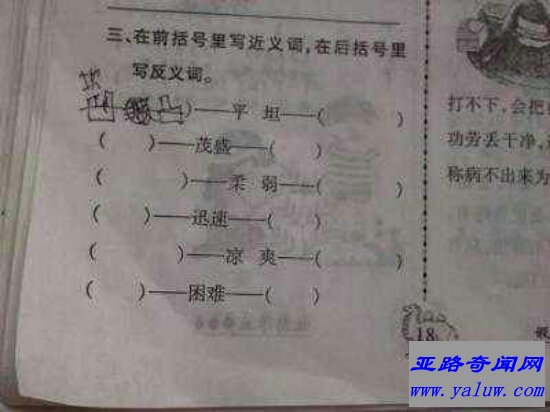 三、在前括号里写近义词,在后括号里
写反义词。
( )——平 坦——( )
( )——茂盛——( )
( )——柔 弱——( )
( )——迅速——( )
( )——凉 爽——( )
( )——困难——( )
18
打不下,会把
功劳丢干净,
称病不出来为
亚路奇闻网
www.yaluw.com